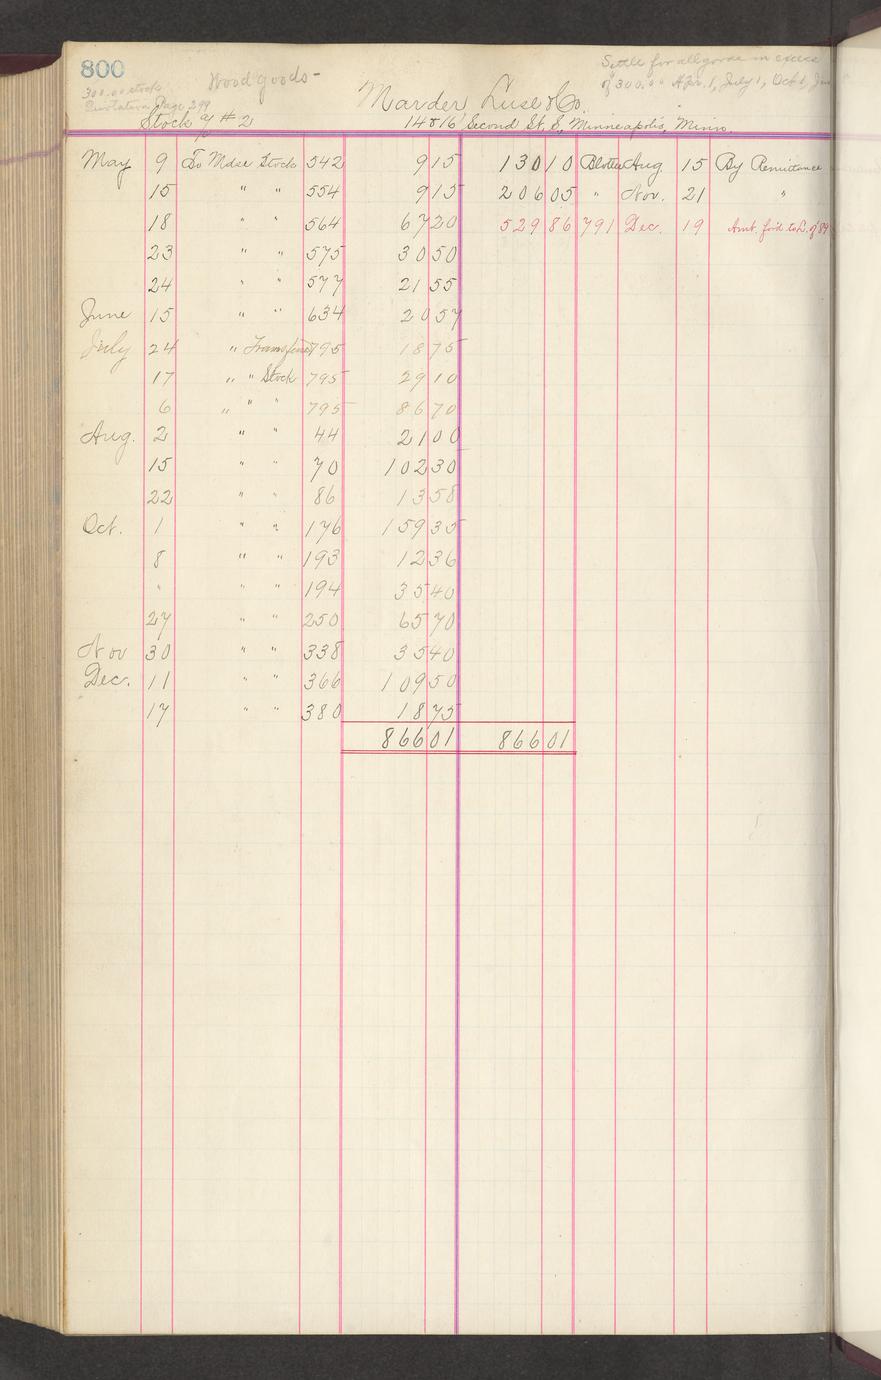 800
Wood goods -
Settle for all goods in excess
of 300.00 Apr. 1, July 1, Oct 1, Jan
300.00 stock
Quotation Page 299
Marder Luse & Co.
Stock a/c # 2
14 & 16 Second St, S, Minneapolis, Minn.
May 9 To Mdse Stock 542 9 15 130 10 Blotter Aug. 15 By Remittance
15 " " 554 9 15 206 05 " Nov. 21 "
18 " " 564 67 20 529 86 791 Dec. 19 Amt. for'd to L. of 89
23 " " 575 30 50
24 " " 577 21 55
June 15 " " 634 20 57
July 24 " 795 18 75
17 " " Stock 795 29 10
6 " " " 795 86 70
Aug. 2 " " 44 21 00
15 " " 70 102 30
22 " " 86 13 58
Oct. 1 " " 176 159 35
8 " " 193 12 36
" " " 194 35 40
27 " " 250 65 70
Nov 30 " " 338 35 40
Dec. 11 " " 366 109 50
17 " " 380 18 75
866 01 866 01